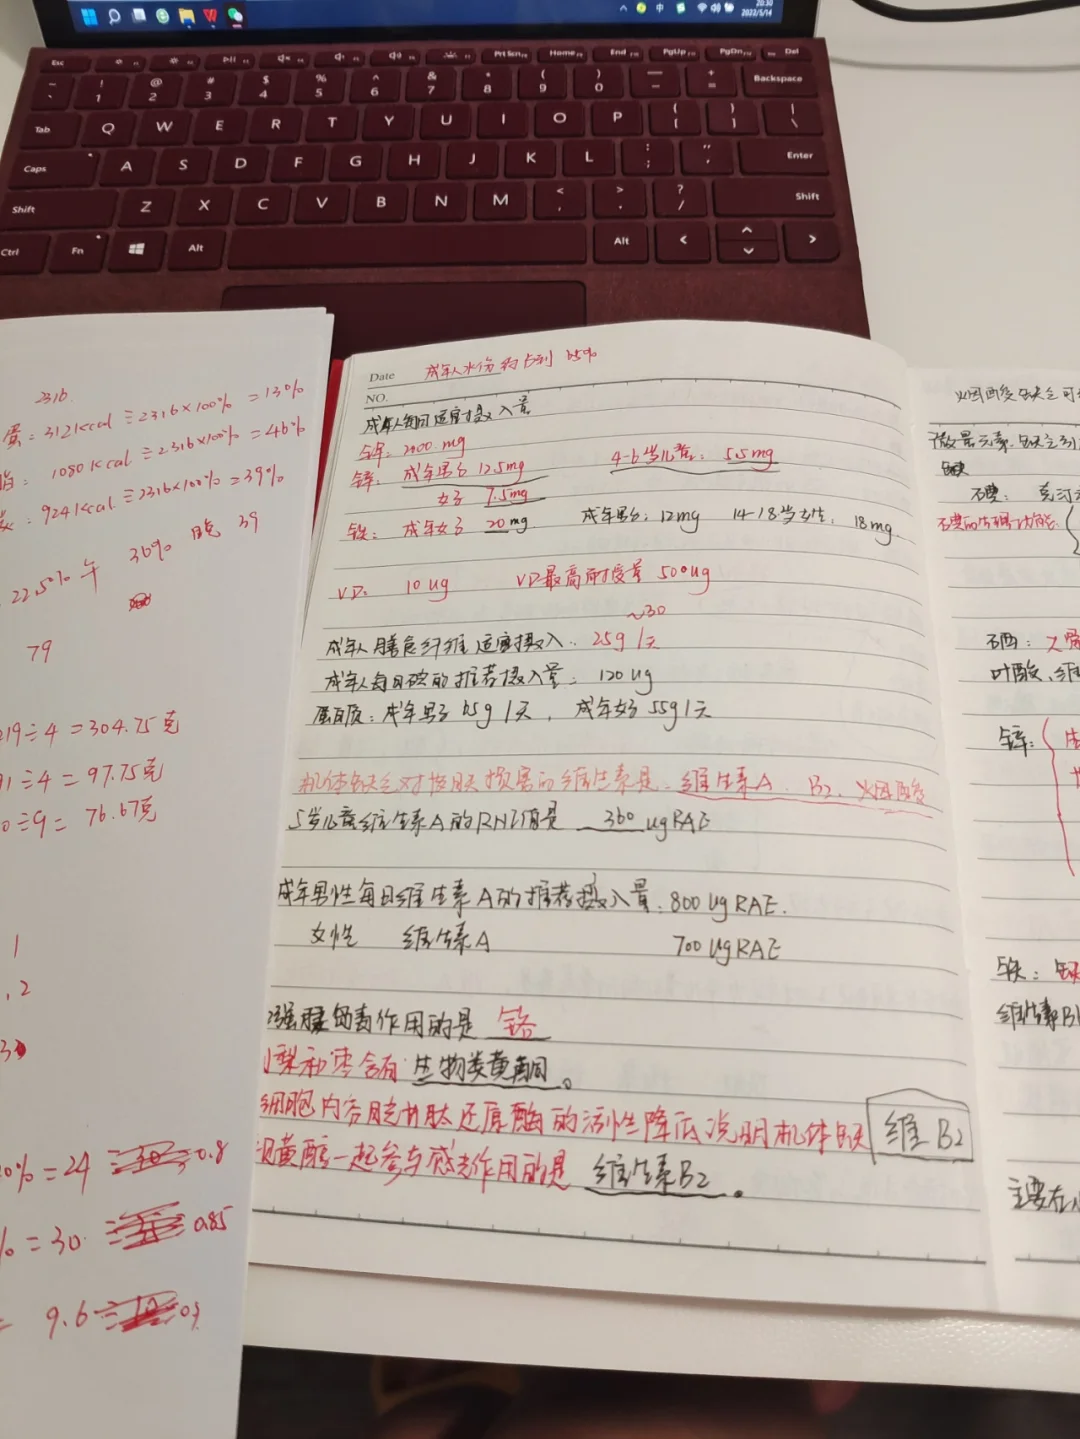 20:30
2022/5/14
Esc PrtScn Home End PgUp PgDn Del
~ ! @ # $ % ^ & * ( ) — + Backspace
` 1 2 3 4 5 6 7 8 9 0 - =
Tab Q W E R T Y U I O P { } |
[ ] \
Caps A S D F G H J K L : " Enter
; '
Shift Z X C V B N M < > ? Shift
, . /
Ctrl Fn Alt Alt < ^ >
2316
蛋:312kcal ÷2316×100% =13%
脂: 1080kcal ÷2316×100% =46%
924kcal ÷2316×100% =39%
22.5% 午 36% 晚 39
79
219÷4 =304.75克
91÷4 =97.75克
0÷9= 76.67克
1
.2
3
0%=24 0.8
%=30. 0.85
= 9.6
Date 成年人水份约占到 65%
NO.
成年人每日适宜摄入量
钾:2000mg
锌:成年男子 12.5mg 4-6岁儿童:5.5mg
女子 7.5mg
铁:成年女子 20mg 成年男子:12mg 14-18岁女生:18mg
VD. 10ug VD最高耐受量 500ug
~30
成年人膳食纤维适宜摄入:25g/天
成年人每日碘的推荐摄入量:120ug
蛋白质:成年男子65g/天,成年女子55g/天
机体缺乏对皮肤损害的维生素是:维生素A、B2、烟酸
5岁儿童维生素A的RNI值是 360 ugRAE
成年男性每日维生素A的推荐摄入量:800ugRAE.
女性 维生素A 700ugRAE
强胰岛素作用的是 铬
梨和枣含有 生物类黄酮。
细胞内谷胱甘肽还原酶的活性降低说明机体缺 维B2
视黄醇一起参与感光作用的是 维生素B2。
微量元素
碘:
硒:
叶酸、维
锌:
铁:缺
维生素B1
主要在